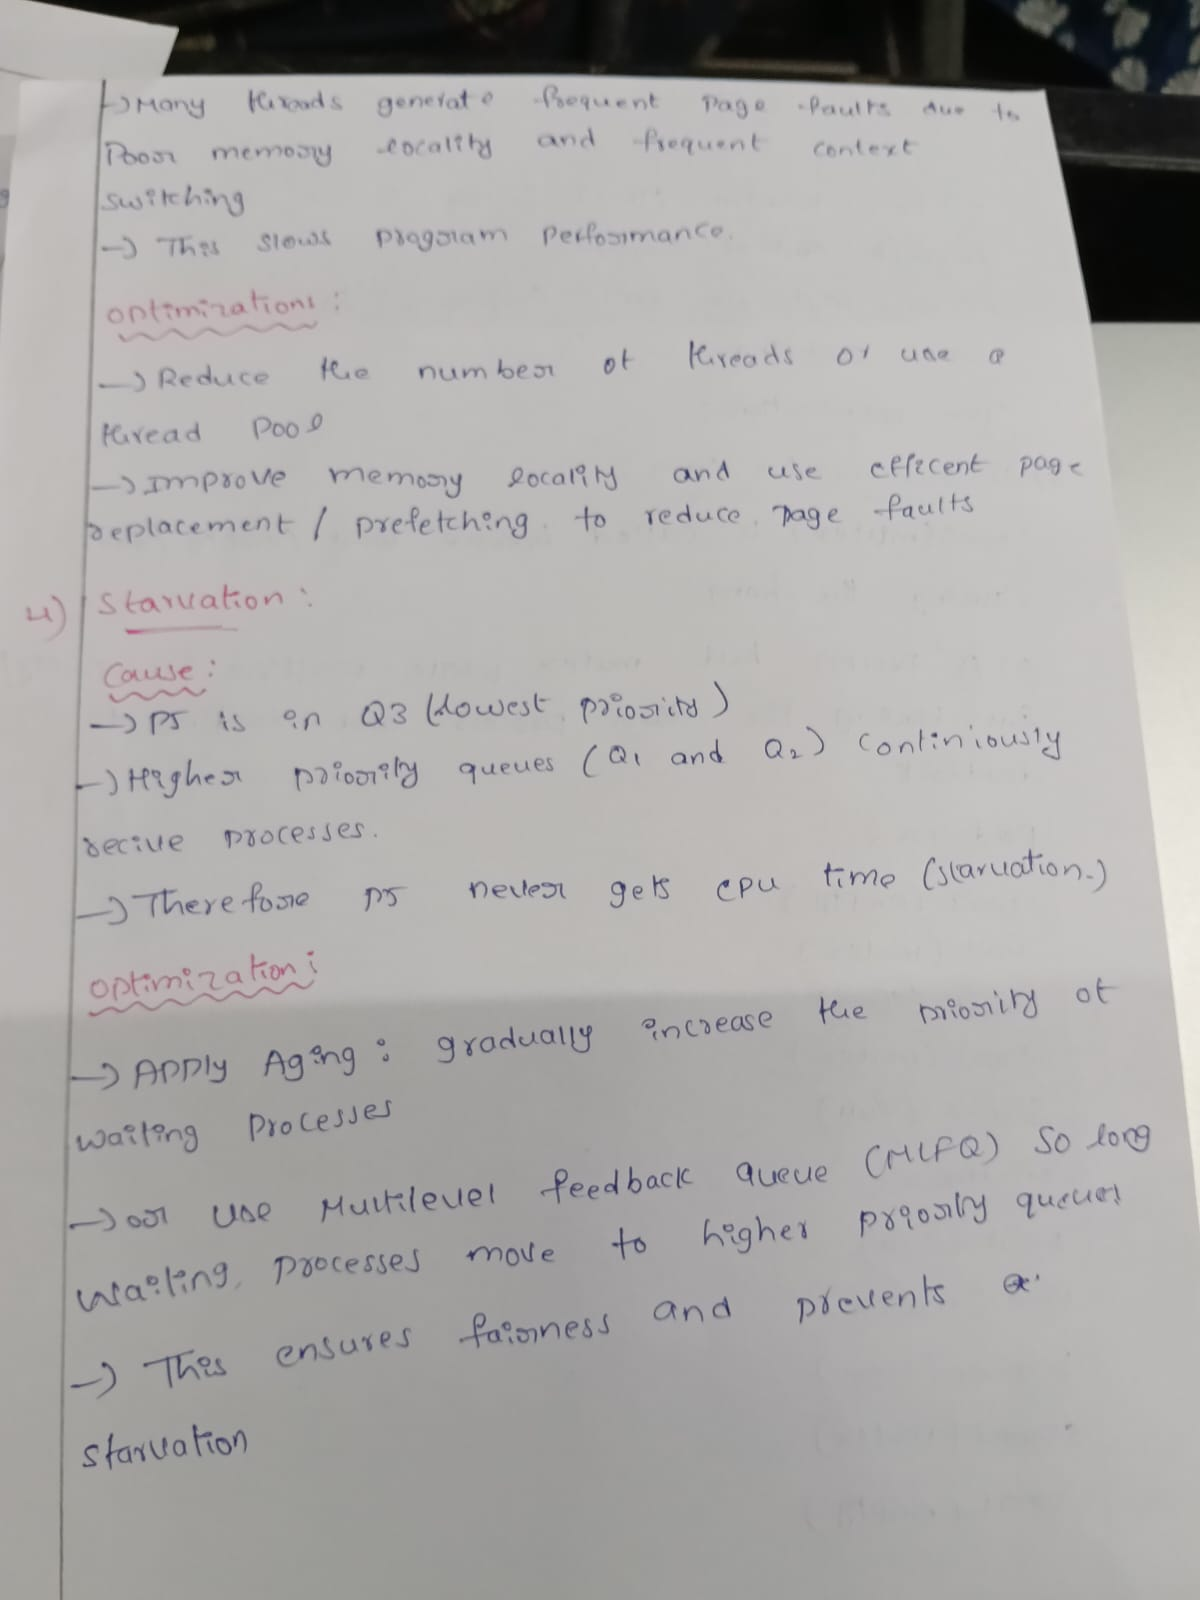 → Many threads generate frequent page faults due to
Poor memory locality and frequent context
switching
→ This slows program performance.
optimizations :
→ Reduce the number of threads or use a
thread pool
→ Improve memory locality and use efficent page
replacement / prefetching to reduce page faults
4) Starvation :
Cause :
→ P5 is in Q3 (lowest priority)
→ Higher priority queues (Q1 and Q2) continiously
recive processes.
→ Therefore P5 never gets CPU time (starvation.)
optimization :
→ Apply Aging : gradually increase the priority of
waiting processes
→ or use Multilevel feedback queue (MLFQ) so long
waiting, processes move to higher priority queues
→ This ensures fairness and prevents
starvation